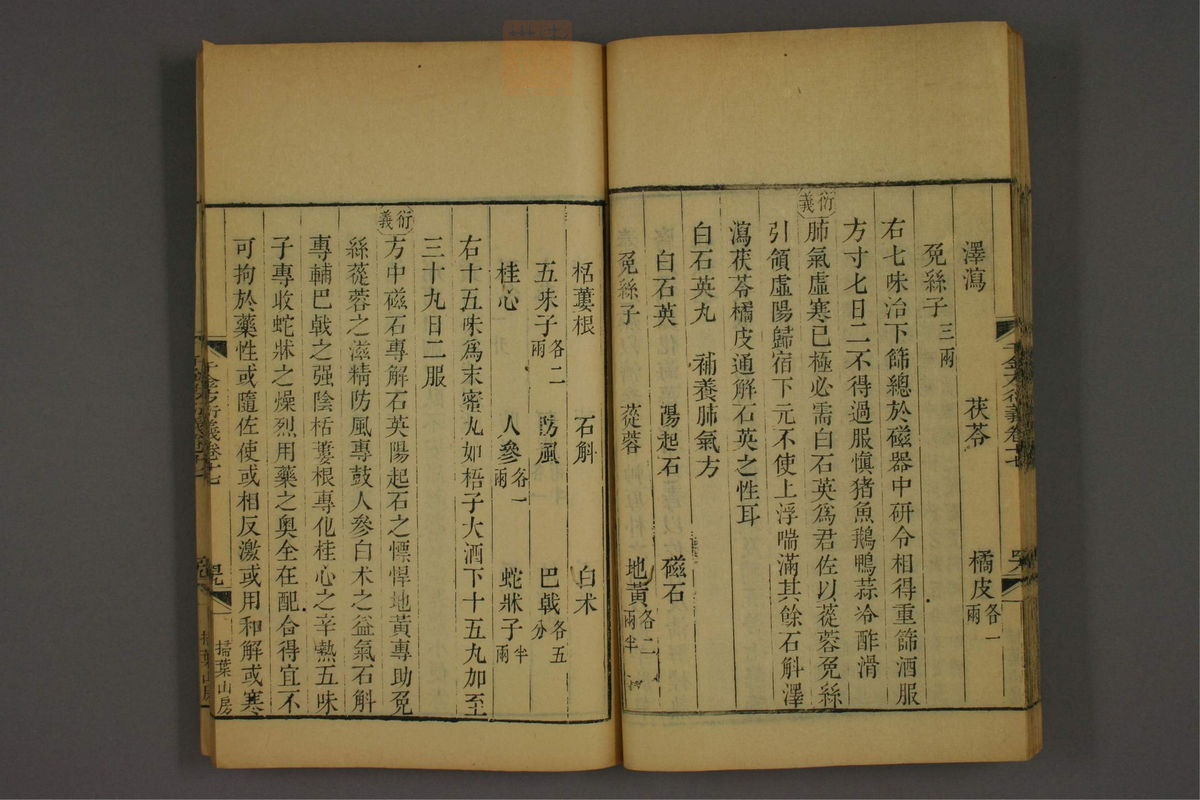 澤瀉 茯苓 橘皮各一兩
兔絲子三兩
右七味治下篩總於磁器中研令相得重篩酒服
方寸七日二不得過服慎猪魚鵝鴨蒜冷酢滑
衍義 肺氣虛寒已極必需白石英爲君佐以蓯蓉兔絲
引領虛陽歸宿下元不使上浮喘滿其餘石斛澤
瀉茯苓橘皮通解石英之性耳
白石英丸 補養肺氣方
白石英 陽起石 磁石
兔絲子 蓯蓉 地黃各二兩半
栝蔞根 石斛 白术
五味子各二兩 防風 巴戟各五分
桂心 人參各一兩 蛇牀子半兩
右十五味爲末蜜丸如梧子大酒下十五丸加至
三十九日二服
衍義 方中磁石專解石英陽起石之慓悍地黃專助兔
絲蓯蓉之滋精防風專鼓人參白术之益氣石斛
專輔巴戟之强陰栝蔞根專化桂心之辛熱五味
子專收蛇牀之燥烈用藥之奧全在配合得宜不
可拘於藥性或隨佐使或相反激或用和解或寒
千金方衍義卷十七
掃葉山房